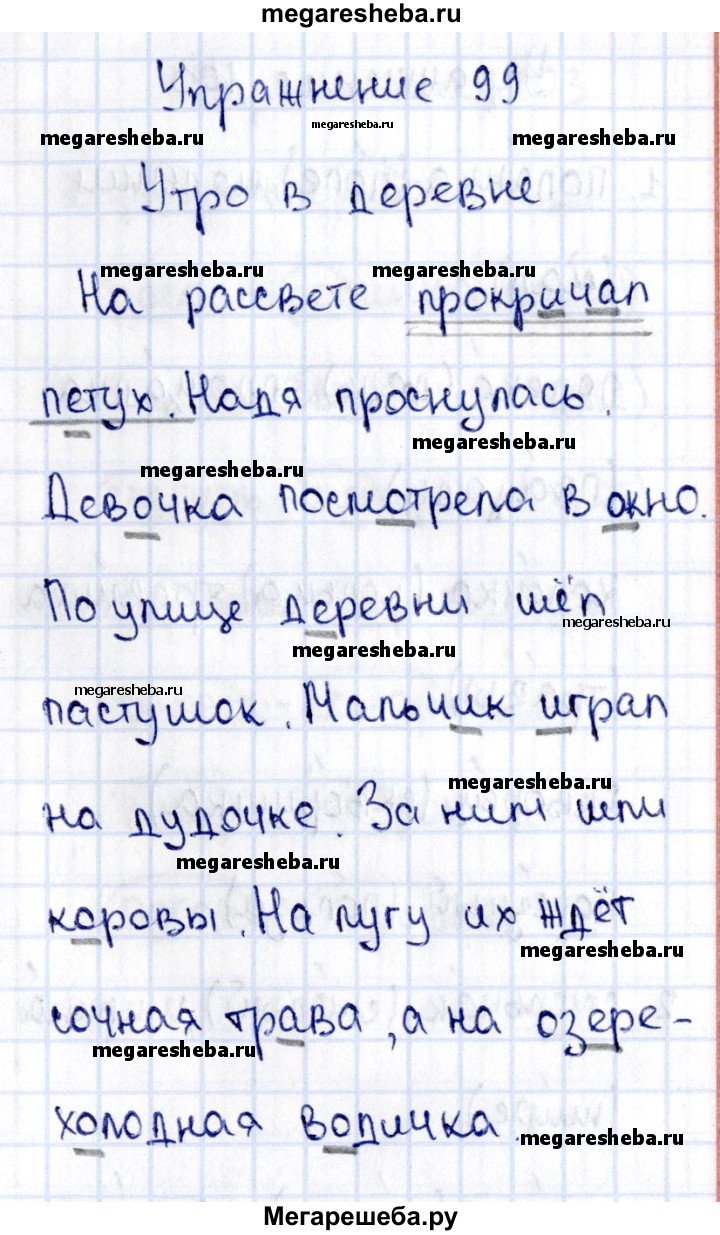 megaresheba.ru
Упражнение 99
megaresheba.ru
megaresheba.ru
megaresheba.ru
Утро в деревне
megaresheba.ru
megaresheba.ru
На рассвете прокричал
петух. Надя проснулась.
megaresheba.ru
megaresheba.ru
Девочка посмотрела в окно.
По улице деревни шёл
megaresheba.ru
megaresheba.ru
megaresheba.ru
пастушок. Мальчик играл
megaresheba.ru
на дудочке. За ним шли
megaresheba.ru
коровы. На лугу их ждёт
megaresheba.ru
сочная трава, а на озере-
megaresheba.ru
холодная водичка.
megaresheba.ru
Мегарешеба.ру